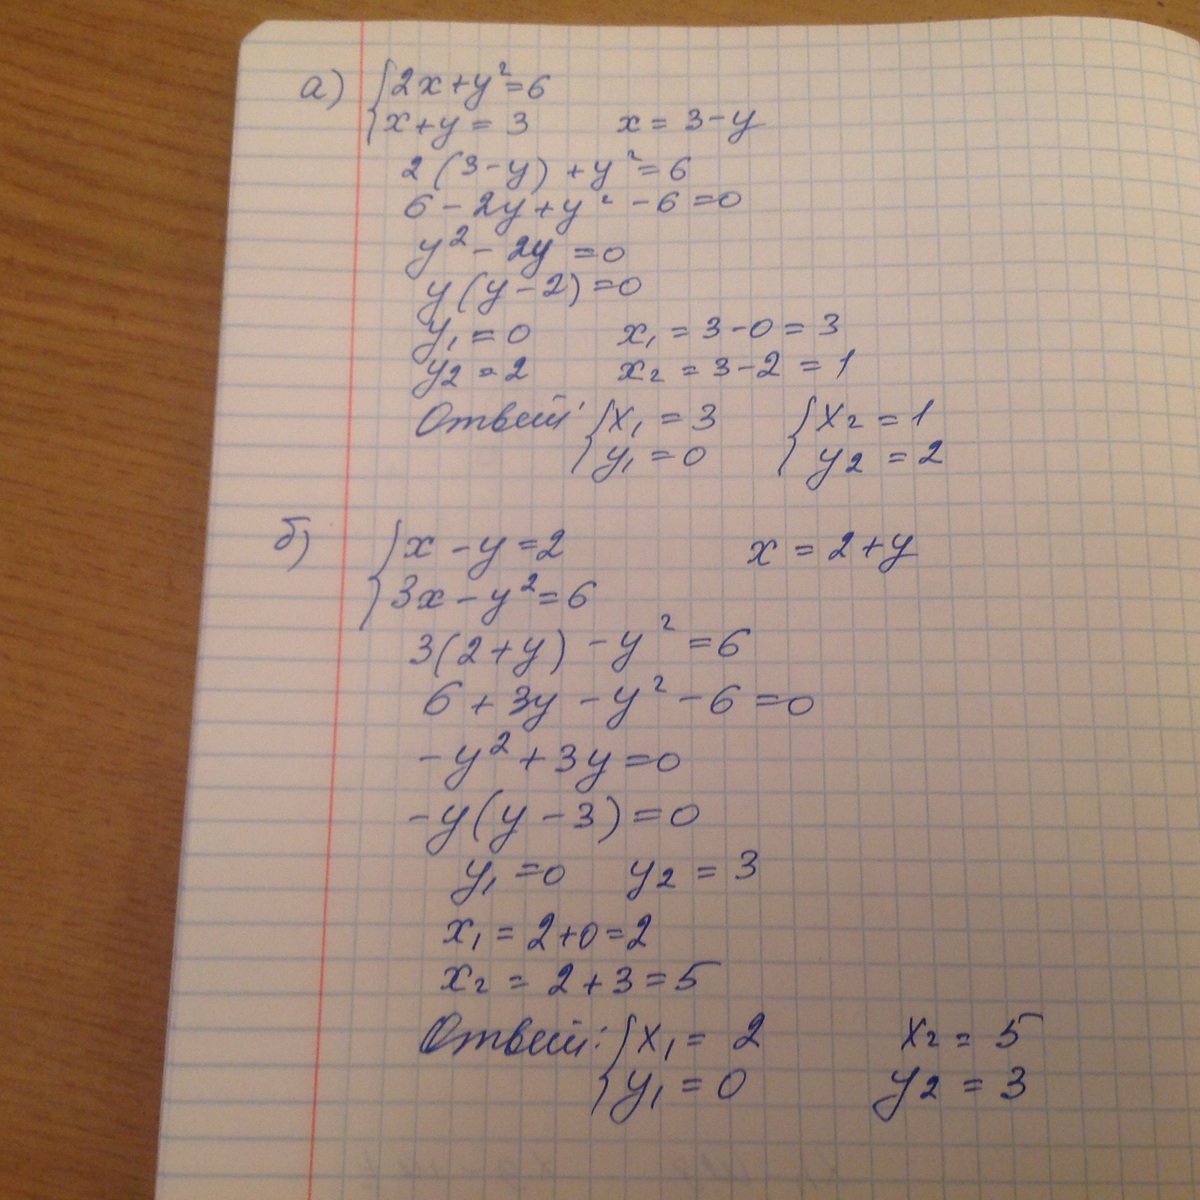 а) {2x+y²=6
{x+y=3 x=3-y
2(3-y)+y²=6
6-2y+y²-6=0
y²-2y=0
y(y-2)=0
y₁=0 x₁=3-0=3
y₂=2 x₂=3-2=1
Ответ: {x₁=3 {x₂=1
{y₁=0 {y₂=2
б) {x-y=2 x=2+y
{3x-y²=6
3(2+y)-y²=6
6+3y-y²-6=0
-y²+3y=0
-y(y-3)=0
y₁=0 y₂=3
x₁=2+0=2
x₂=2+3=5
Ответ: {x₁=2 x₂=5
{y₁=0 y₂=3